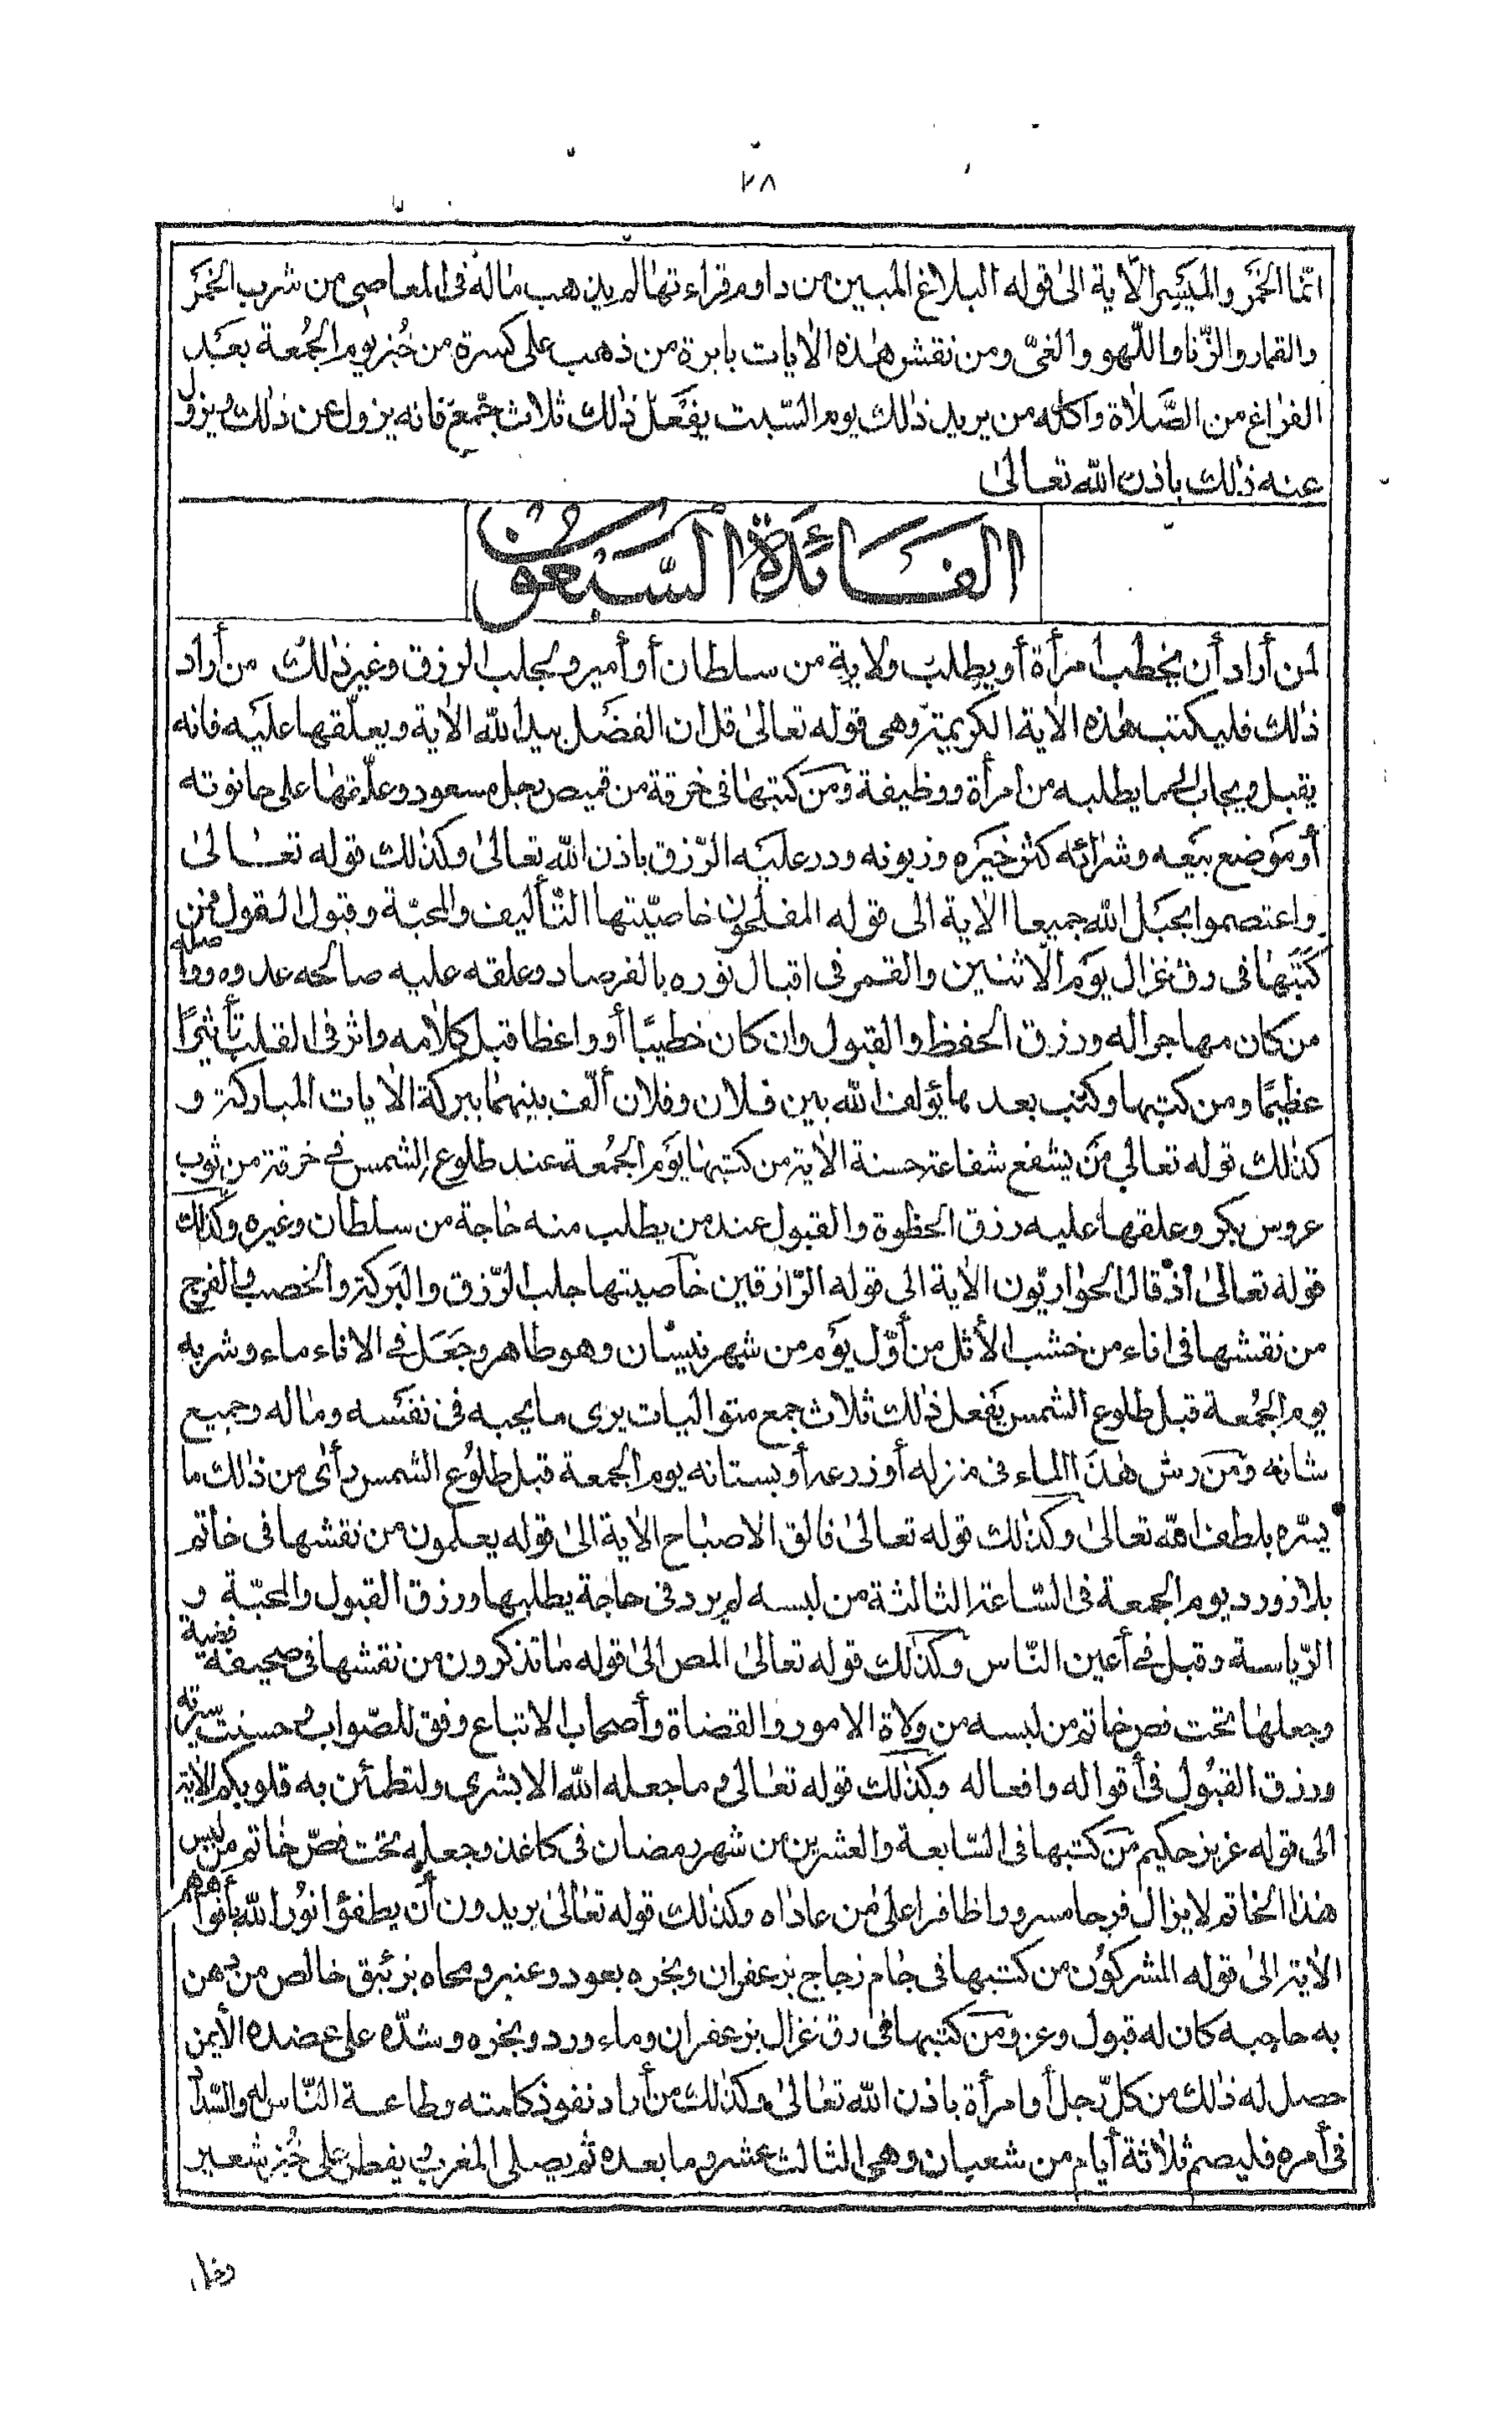 ٢٨
انّما الخمَر والمَيسِر الآية الىٰ قوله البلاغ المبين من داوم قراءتها لم يذهب ماله فى المعاصى من شرب الخمَر
والقمار والزّنا واللّهو والغىّ ومن نقش هٰذه الاٰيات بابرة من ذهب على كسرة من خُبز يوم الجُمعة بعَد
الفراغ من الصَّلاة واكله من يريد ذٰلك يوم السّبت يفعَل ذٰلك ثلاث جُمَع فانه يزول عن ذٰلك ويزول
عنه ذٰلك باذن الله تعالىٰ
الفائدة السَّبعون
لمن أراد أن يخطب امرأة أو يطلب ولاية من سلطان أو أمير ولجلب الرزق وغير ذٰلك من أراد
ذٰلك فليكتب هٰذه الاٰية الكريمة وهى قوله تعالىٰ قل ان الفضَل بيد الله الاٰية ويعلّقها عليَه فانه
يقبل ويجاب لما يطلبه من امرأة ووظيفة ومَن كتبها فى خرقة من قميص رجل مسعود وعلّقها على حانوته
أو موَضع بيَعه وشرائه كثر خيَره وزبونه ودر عليَه الرّزق باذن الله تعالىٰ وكذٰلك قوله تعَالىٰ
واعتصموا بحبَل الله جميعا الاٰية الى قوله المفلحون خاصّيّتها التّأليف والمحبّة وقبول القول فمن
كتَبها فى رق غزال يوَم الاثنين والقمر فى اقبال نوره بالفرصاد وعلقه عليه صالحه عدوه ووصله
من كان مهاجرا له ورزق الحفظ والقبول وان كان خطيبًا أو واعظا قبل كلامه واثر فى القلب تأثيرًا
عظيمًا ومن كتبها وكتب بعدها يؤلف الله بين فلان وفلان ألّف بينهما ببركة الاٰيات المباركة و
كذٰلك قوله تعالى مَن يشفع شفاعة حسنة الاٰية من كتبها يوَم الجُمعة عند طلوع الشمس فى خرقة من ثوب
عروس بكر وعلقها عليه رزق الحظوة والقبول عند من يطلب منه حاجة من سلطان وغيره وكذٰلك
قوله تعالىٰ اذ قال الحواريّون الاٰية الى قوله الرّازقين خاصيتها جلب الرّزق والبَركة والخصب والفرج
من نقشها فى اناء من خشب الأثل من أوّل يوَم من شهر نيسان وهو طاهر وجَعَل فى الاناء ماء وشربه
يوم الجُمعة قبل طلوع الشمس يَفعل ذٰلك ثلاث جمع متواليات يرى ما يحبه فى نفَسه وماله وجميع
شانه ومَن رش هٰذَا الماء فى منزله أو زرعه أو بستانه يوم الجمعة قبل طلوُع الشمس رأى من ذٰلك ما
يسرّه بلطف الله تعالىٰ وكذٰلك قوله تعالىٰ فالق الاصباح الاٰية الىٰ قوله يعلمون من نقشها فى خاتم
بلازورد يوم الجمعة فى السّاعة الثالثة من لبسه لم يرد فى حاجة يطلبها ورزق القبول والمحبّة و
الرّياسة وقبل فى أعين النّاس وكذٰلك قوله تعالىٰ المص الىٰ قوله ما تذكرون من نقشها فى صحيفة فضية
وجعلها تحت فص خاتم من لبسه من ولاة الامور والقضاة وأصحاب الاتباع وفق للصّواب وحسنت سيرته
ورزق القبُول فى أقواله وافعاله وكذٰلك قوله تعالى وما جعله الله الا بشرى ولتطمئن به قلوبكم الاٰية
الى قوله عزيز حكيم مَن كتبها فى السّابعة والعشرين من شهر رمضان فى كاغذ وجعله تحت فصّ خاتم من لبس
هٰذا الخاتم لا يزال فرحا مسرورا ظافرا علىٰ مَن عاداه وكذٰلك قوله تعالىٰ يريدون أن يطفؤا نوُر الله بأفواههم
الاٰية الىٰ قوله المشركوُن من كتبها فى جام زجاج بزعفران وبخره بعود وعنبر ومحاه بزئبق خالص من دهن
به حاجبه كان له قبول وعز ومَن كتبها فى رق غزال بزعفران وماء ورد وبخره وشدّه على عضده الأيمن
حصل له ذٰلك من كلّ رجل أو امرأة باذن الله تعالىٰ وكذٰلك من أراد نفوذ كلمته وطاعة النّاس له
فى أمره فليصم ثلاثة أيام من شعبان وهى الثالث عشر وما بعده ثم يصلى المغرب ويفطر على خُبز شعير